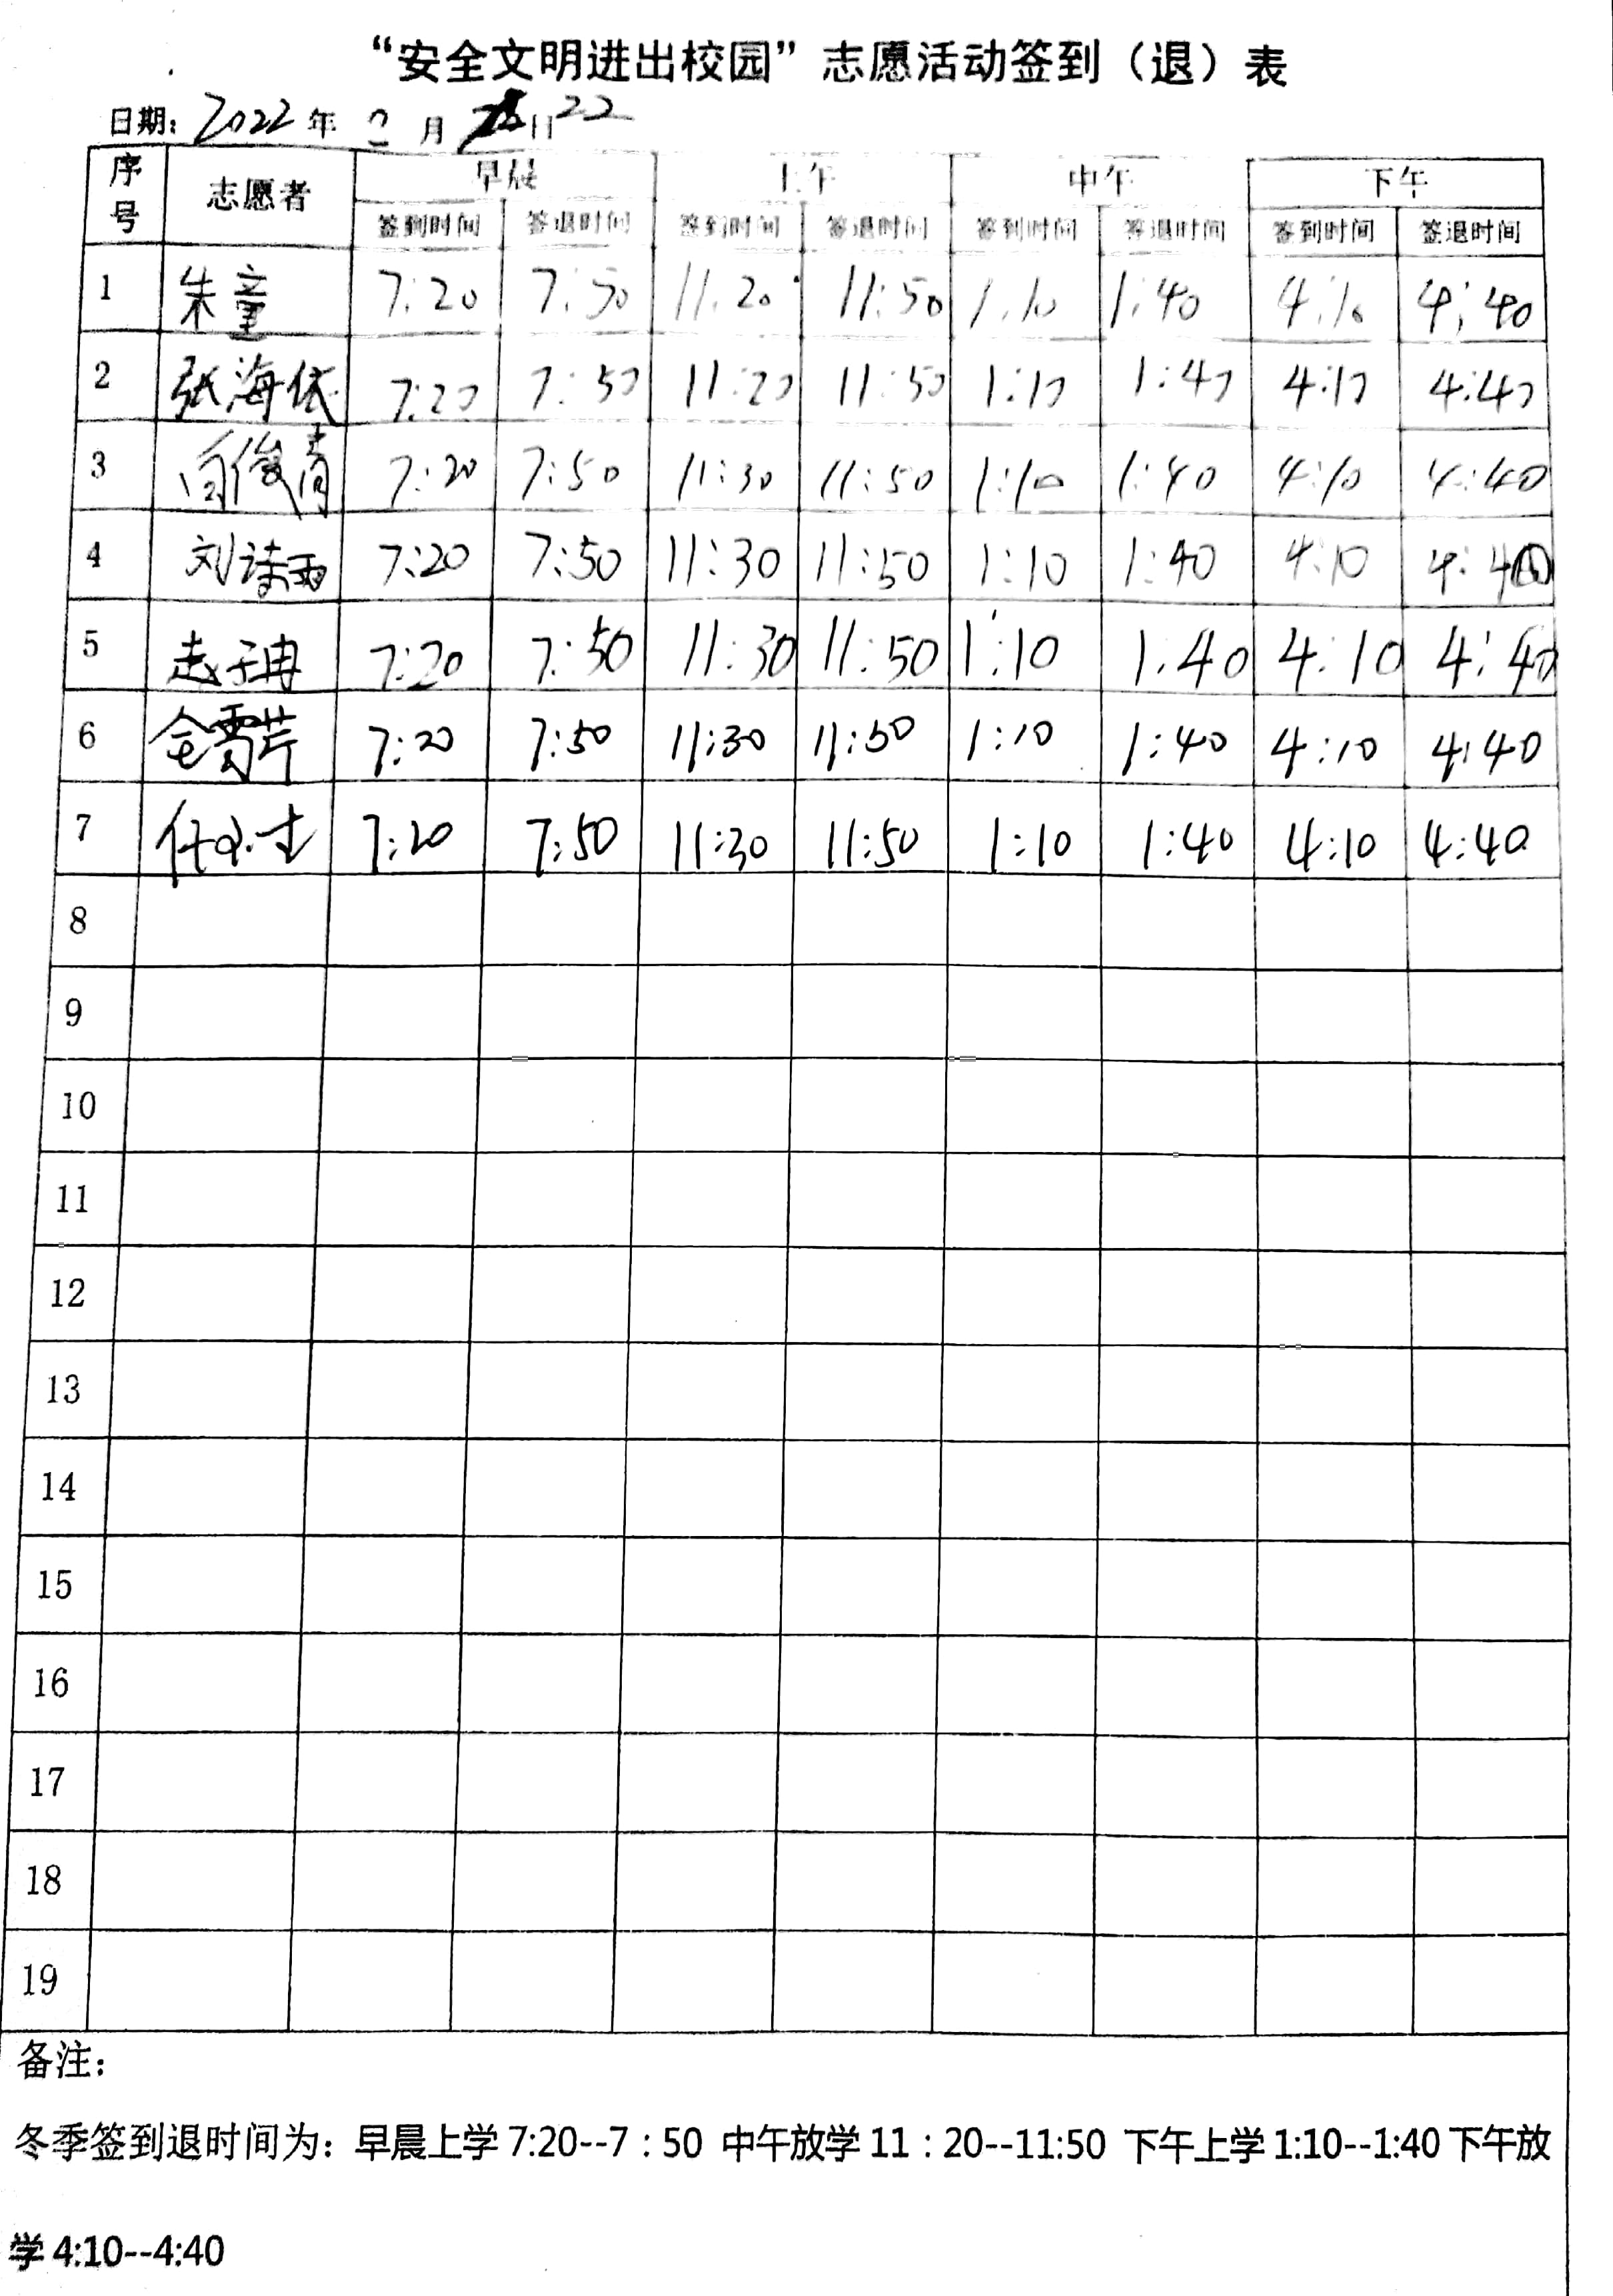 “安全文明进出校园”志愿活动签到（退）表
日期：2022年2月 日22
序号 志愿者 早晨 上午 中午 下午
签到时间 签退时间 签到时间 签退时间 签到时间 签退时间 签到时间 签退时间
1 朱童 7:20 7:50 11:20 11:50 1:10 1:40 4:10 4:40
2 张海依 7:20 7:50 11:20 11:50 1:10 1:40 4:10 4:40
3 俊青 7:20 7:50 11:30 11:50 1:10 1:40 4:10 4:40
4 刘诗雨 7:20 7:50 11:30 11:50 1:10 1:40 4:10 4:40
5 赵子冉 7:20 7:50 11:30 11:50 1:10 1:40 4:10 4:40
6 金雪芹 7:20 7:50 11:30 11:50 1:10 1:40 4:10 4:40
7 7:20 7:50 11:30 11:50 1:10 1:40 4:10 4:40
8
9
10
11
12
13
14
15
16
17
18
19
备注：
冬季签到退时间为：早晨上学7:20--7：50 中午放学11：20--11:50 下午上学1:10--1:40下午放
学4:10--4:40